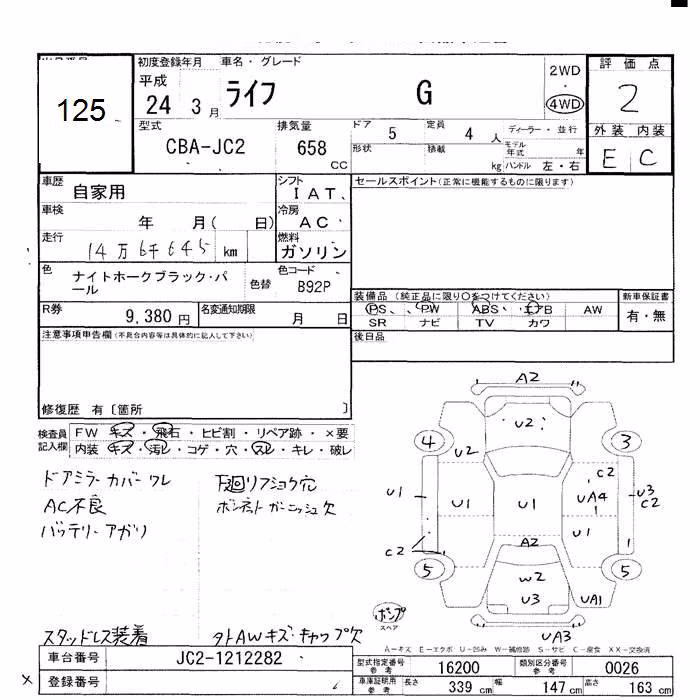 初度登録年月 車名・グレード
平成 24 3 月 ライフ G 2WD ・ 4WD
評価点
2
外装 内装
E C
125
型式 CBA-JC2 排気量 658 CC
ドア 5 定員 4 人 ディーラー・並行
形状 積載 kg モデル年式 年
ハンドル 左・右
車歴 自家用 シフト I A T、
車検 年 月( 日) 冷房 A C
走行 14万6千645 km 燃料 ガソリン
色 ナイトホークブラック・パール 色替 色コード B92P
R券 9,380 円 名変通知期限 月 日
セールスポイント(正常に機能するものに限ります)
装備品 (純正品に限り○をつけてください) 新車保証書
PS、 PW ABS・ エアB AW 有・無
SR ナビ TV カワ
後日品
注意事項申告欄(不具合内容等は具体的に記入して下さい)
修復歴 有〔箇所 〕
検査員記入欄 FW キズ・飛石・ヒビ割・リペア跡・×要
内装 キズ・汚レ・コゲ・穴・スレ・キレ・破レ
ドアミラーカバーワレ
AC不良
バッテリーアガリ
下廻リアショウ穴
ボンネットガーニッシュ欠
スタッドレス装着
タトAWキズ・キャップ欠
A2
U2
4 3
U2 C2
U1 U1 U1 UA4 1 U3 C2
U1
C2 A2 1
5 W2 5
U3 UA1
UA3
ポンプ
スペア
A-キズ E-エクボ U-凹み W-補修跡 S-サビ C-腐食 XX-交換済
車台番号 JC2-1212282
登録番号
型式指定番号 参考 16200 類別区分番号 参考 0026
車庫証明用 参考 長さ 339 cm 幅 147 cm 高さ 163 cm